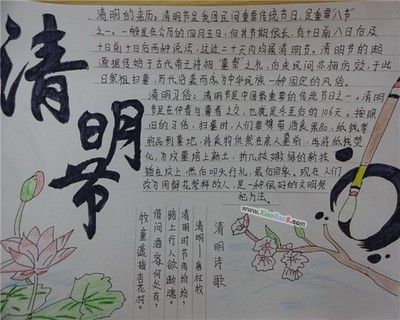 清明节
清明的来历:清明节是我国民间重要传统节日,是重要"八节
之一,一般是在公历的四月五日,但其节期很长,有十日前八日后及
十日前十日后两种说法,这近二十天内均属清明节。清明节的起
源据传始于古代帝王将相"墓祭"之礼,后来民间亦相仿效,于此
日祭祖扫墓,历代沿袭而成为中华民族一种固定的风俗。
清明习俗:清明节是中国最重要的传统节日之一。清明
节是在仲春与暮春之交,也就是冬至后的106天。按照
旧的习俗,扫墓时,人们要携带酒食果品,纸钱等
物品到墓地,将食物供祭在亲人墓前,再将纸钱焚
化,为坟墓培上新土,折几枝嫩绿的新枝
插在坟上,然后叩头行礼,最后回家,现在人们
改为用鲜花祭祀故人,是一种很好的文明祭
祀方法。
www.XiaoBao8.com
清明诗歌
清明——唐杜牧
清明时节雨纷纷,
路上行人欲断魂。
借问酒家何处有,
牧童遥指杏花村。